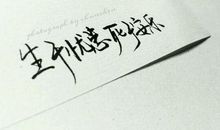 photograph by zhenzhen
生于忧患 死于安乐